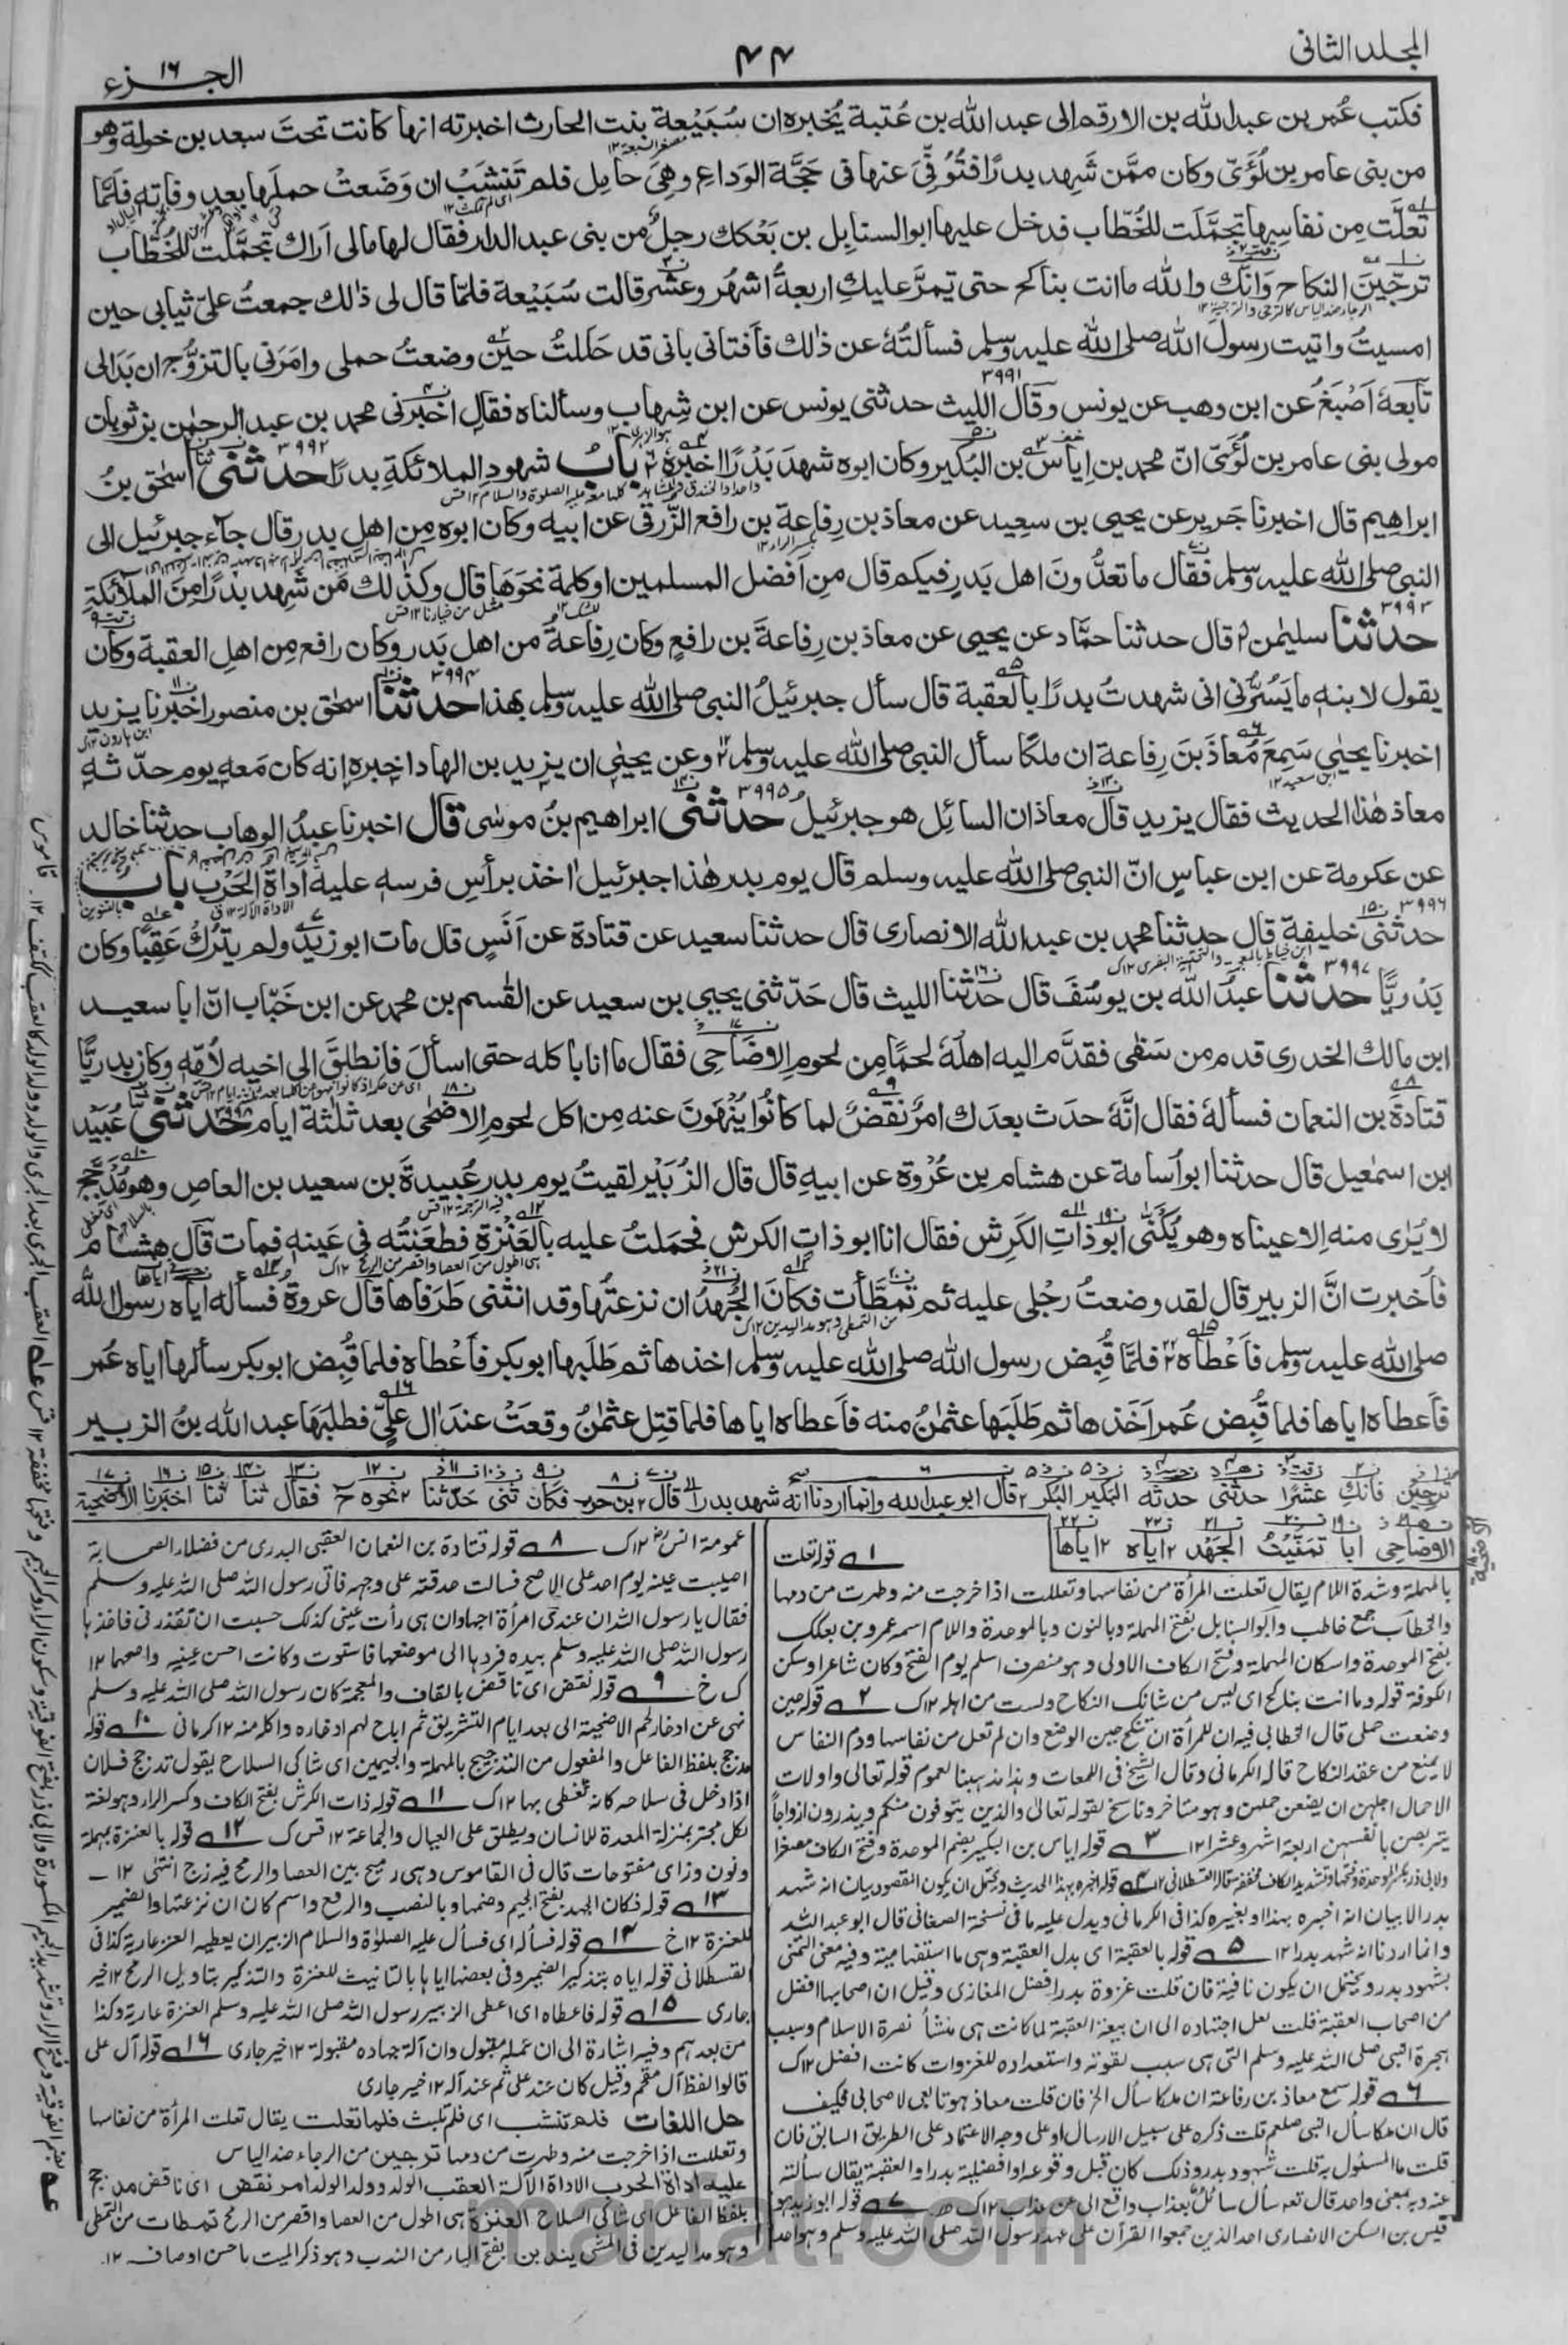 المجلد الثانى
٤٤
الجزء ١٦
فكتب عُمر بن عبد الله بن الارقم الى عبد الله بن عُتبة يُخبره ان سُبَيْعة بنت الحارث اخبرته انها كانت تحتَ سعد بن خولة وهو
من بنى عامر بن لُؤَىّ وكان ممَّن شَهِد بدرًا فتُوُفّىَ عنها فى حَجَّة الوَداعِ وهِىَ حامِل فلم تَنشَبْ ان وَضَعتْ حملَها بعد وفاته فلمّا
تعلَّت مِن نفاسِها تجمَّلَت للخُطّاب فدخل عليها ابو السنابِل بن بَعْكك رجلٌ من بنى عبد الدار فقال لها مالى اَراك تجمَّلت للخُطّاب
ترجّينَ النكاح وَانّك والله ما انت بناكح حتى تمرَّ عليكِ اربعةُ اشهُر وعشر قالت سُبَيْعة فلمّا قال لى ذٰلك جمعتُ علىّ ثيابى حين
امسيتُ واتيت رسول الله صلى الله عليه وسلم فسألتُهٗ عن ذٰلك فاَفتانى بانى قد حَلَلتُ حينَ وضعتُ حملى وامَرَنى بالتزوُّج ان بَدَا لى
تابعهٗ اَصْبَغُ عن ابن وهب عن يونس وقال الليث حدثنى يونس عن ابن شِهاب وسألناه فقال اخبرنى محمد بن عبد الرحمٰن بن ثوبان
مولى بنى عامر بن لُؤَىّ انّ محمد بن اِياس بن البُكير وكان ابوه شهدَ بَدْرًا اخبرهٗ بابُ شهودِ الملائكةِ بدرًا حدثنى اسحٰق بنُ
ابراهيم قال اخبرنا جَرير عن يحيى بن سعيد عن معاذ بن رِفاعة بن رافع الزُّرَقى عن ابيه وكان ابوه مِن اهل بدر قال جآء جبرئيل الى
النبى صلى الله عليه وسلم فقال ما تعدُّونَ اهل بَدرٍ فيكم قال مِن اَفضل المسلمين او كلمة نحوَها قال وكذٰلك مَن شهد بدرًا مِنَ الملآئكةِ
حدثنا سليمٰن قال حدثنا حمَّاد عن يحيى عن معاذ بن رِفاعةَ بن رافعٍ وكان رِفاعةُ من اهل بَدر وكان رافع مِن اهلِ العقبة وكان
يقول لابنهٖ ما يَسُرُّنى انى شهدتُ بدرًا بالعقبة قال سأل جبرئيلُ النبى صلى الله عليه وسلم بهذا حدثنا اسحٰق بن منصور اخبرنا يزيد
اخبرنا يحيٰى سَمِعَ مُعاذَ بنَ رِفاعة ان ملكًا سأل النبى صلى الله عليه وسلم وعن يحيٰى ان يزيد بن الهاد اخبره انه كان مَعه يوم حدّثه
معاذ هٰذا الحديث فقال يزيد قال معاذ ان السائِل هو جبرئيلُ حدثنى ابراهيم بنُ موسٰى قال اخبرنا عبدُ الوهاب حدثنا خالد
عن عكرمة عن ابن عباسٍ انّ النبى صلى الله عليه وسلم قال يوم بدر هٰذا جبرئيل اٰخذ برأسِ فرسهٖ عليه اَداةُ الحَرْب بابٌ
حدثنى خليفة قال حدثنا محمد بن عبد الله الانصارى قال حدثنا سعيد عن قتادة عن اَنَسٍ قال مات ابو زيد ولم يترُكْ عَقِبًا وكان
بَدْرِيًّا حدثنا عبدُ الله بن يوسُفَ قال حدثنا الليث قال حَدّثنى يحيى بن سعيد عن القٰسم بن محمد عن ابن خَبّاب انّ ابا سعيد
ابن مالك الخدرى قدم من سَفَر فقدَّم اليه اهلُهٗ لحمًا مِن لحومِ الاَضَاحِى فقال ما انا باٰكله حتى اسألَ فانطلقَ الى اخيه لاُمّهٖ وكان بدريًّا
قتادةَ بن النعمان فسألهٗ فقال اِنَّهٗ حدَث بعدَك امرٌ نَقضٌ لما كانُوا يُنْهَونَ عنه مِن اكل لحومِ الاضحٰى بعد ثلٰثة ايام حدثنى عُبَيْد
ابن اسمٰعيل قال حدثنا ابو اُسامة عن هشام بن عُرْوة عن ابيهِ قال قال الزُبَيْر لقيتُ يوم بدر عُبيدةَ بن سعيد بن العاصِ وهو مُدَجَّج
لا يُرٰى منه اِلا عيناه وهو يُكنّٰى ابو ذاتِ الكَرِش فقال انا ابو ذاتِ الكرش فحملتُ عليه بالعَنَزةِ فطعَنتُه فى عَينهٖ فمات قال هشام
فاُخبرت انَّ الزبير قال لقد وضعتُ رجْلى عليه ثم تمطّأت فكانَ الجُهدُ ان نزعتُها وقد انثنى طَرَفاها قال عروة فسأله اياه رسول الله
صلى الله عليه وسلم فاَعْطاه فلمَّا قُبِض رسول الله صلى الله عليه وسلم اخذها ثم طَلَبها ابو بكر فاَعْطاه فلما قُبِض ابو بكر سألها اياه عُمر
فاَعطاه اياها فلما قُبِض عُمر اَخَذها ثم طَلَبها عثمٰنُ منه فاَعطاه اياها فلما قتِل عثمٰنُ وقعَتْ عندَ اٰل علىّ فطلبَها عبد الله بنُ الزبير
ترجين فانك عشرًا حدثنى حدثه البكير البكر قال ابو عبد الله وانما اردنا انه شهد بدرا قال بن حرب فكان ثنى حدثنا نحوه ح فقال ثنا ثنا اخبرنا الاضحية
الاضاحى ابا تمنيت الجهد اياه اياها
١ قوله تعلت
بالمهملة وشدة اللام يقال تعلت المرأة من نفاسها وتعللت اذا خرجت منه وطهرت من دمها
والخطاب جمع خاطب وابو السنابل بفتح المهملة وبالنون وبالموحدة واللام اسمه عمرو بن بعكك
بفتح الموحدة واسكان المهملة وفتح الكاف الاولى وهو منصرف اسلم يوم الفتح وكان شاعرا وسكن
الكوفة قوله وما انت بناكح اى ليس من شانك النكاح ولست من اهله ١٢ك ٢ قوله حين
وضعت حملى قال الخطابى فيه ان للمرأة ان تنكح حين الوضع وان لم تعل من نفاسها ودم النفاس
لا يمنع من عقد النكاح قاله الكرمانى وقال الشيخ فى اللمعات وهذا مذهبنا لعموم قوله تعالى واولات
الاحمال اجلهن ان يضعن حملهن وهو متاخر وناسخ لقوله تعالى والذين يتوفون منكم ويذرون ازواجاً
يتربصن بانفسهن اربعة اشهر وعشرا ١٢ ٣ قوله اياس بن البكير بضم الموحدة وفتح الكاف مصغرا
ولابى ذر بكسر الموحدة وفتحها وتشديد الكاف مخففة قاله القسطلانى ١٢ ٤ قوله اخبره بهذا الحديث ويحتمل ان يكون المقصود بيان انه شهد
بدرا لا بيان انه اخبره بهذا او بغيره كذا فى الكرمانى ويدل عليه ما فى نسخة الصغانى قال ابو عبد الله
وانما اردنا انه شهد بدرا ١٢ ٥ قوله بالعقبة اى بدل العقبة وهى ما استفهامية وفيه معنى التمنى
بشهود بدر ويحتمل ان يكون نافية فان قلت غزوة بدر افضل المغازى وقيل ان اصحابها افضل
من اصحاب العقبة قلت لعل اجتهاده الى ان بيعة العقبة لما كانت هى منشأ نصرة الاسلام وسبب
هجرة النبى صلى الله عليه وسلم التى هى سبب لقوته واستعداده للغزوات كانت افضل ١٢ك
٦ قوله سمع معاذ بن رفاعة ان ملكا سأل الخ فان قلت معاذ هو تابعى لا صحابى فكيف
قال ان ملكا سأل النبى صلعم قلت ذكره على سبيل الارسال او على وجه الاعتماد على الطريق السابق فان
قلت ما المسئول به قلت شهود بدر وذلك كان قبل وقوعه او افضلية بدر او العقبة يقال سألته
عنه وبه بمعنى واحد قال تعالى سأل سائلٌ بعذاب واقع اى عن عذاب ١٢ك ٧ قوله ابو زيد هو
قيس بن السكن الانصارى احد الذين جمعوا القرآن على عهد رسول الله صلى الله عليه وسلم وهو احد
عمومة انس ١٢ك ٨ قوله قتادة بن النعمان العقبى البدرى من فضلاء الصحابة
اصيبت عينه يوم احد على الاصح فسالت حدقته على وجهه فاتى رسول الله صلى الله عليه وسلم
فقال يا رسول الله ان عندى امرأة احبها وان هى رأت عينى كذلك خشيت ان تقذرنى فاخذها
رسول الله صلى الله عليه وسلم بيده فردها الى موضعها فاستوت وكانت احسن عينيه واصحهما ١٢
ك خ ٩ قوله نقض اى ناقض بالقاف والمعجمة كان رسول الله صلى الله عليه وسلم
نهى عن ادخار لحم الاضحية الى بعد ايام التشريق ثم اباح لهم ادخاره واكله منه ١٢ كرمانى ١٠ قوله
مدجج بلفظ الفاعل والمفعول من التدجيج بالمهملة والجيمين اى شاكى السلاح يقول تدجج فلان
اذا دخل فى سلاحه كانه تغطى بها ١٢ك ١١ قوله ذات الكرش بفتح الكاف وكسر الراء وهو لغة
لكل مجتر بمنزلة المعدة للانسان ويطلق على العيال والجماعة ١٢ قس ك ١٢ قوله بالعنزة بمهملة
ونون وزاى مفتوحات قال فى القاموس وهى رميح بين العصا والرمح فيه زج انتهى ١٢
١٣ قوله فكان الجهد بفتح الجيم وضمها وبالنصب والرفع واسم كان ان نزعتها والضمير
للعنزة ١٢خ ١٤ قوله فسأله اى فسأل عليه الصلوٰة والسلام الزبير ان يعطيه العنز عارية كذا فى
القسطلانى قوله اياه بتذكير الضمير وفى بعضها اياها بالتانيث للعنزة والتذكير بتاويل الرمح ١٢ خير
جارى ١٥ قوله فاعطاه اى اعطى الزبير رسول الله صلى الله عليه وسلم العنزة عارية وكذا
من بعدهم وفيه اشارة الى ان عمله مقبول وان آلة جهاده مقبولة ١٢ خير جارى ١٦ قوله آل على
قالوا لفظ آل مقحم وقيل كان عند على ثم عند آله ١٢ خير جارى
حل اللغات فلم تنشب اى فلم تلبث فلما تعلت يقال تعلت المرأة من نفاسها
وتعللت اذا خرجت منه وطهرت من دمها ترجين من الرجاء ضد الياس
عليه اداة الحرب الاداة الآلة العقب الولد وولد الولد امر نقض اى ناقض مدجج
بلفظ الفاعل اى شاكى السلاح العنزة هى اطول من العصا واقصر من الرمح تمطات من التمطى
وهو مد اليدين فى المشى يندبن بفتح الياء من الندب وهو ذكر الميت باحسن اوصافه ١٢
marfat.com